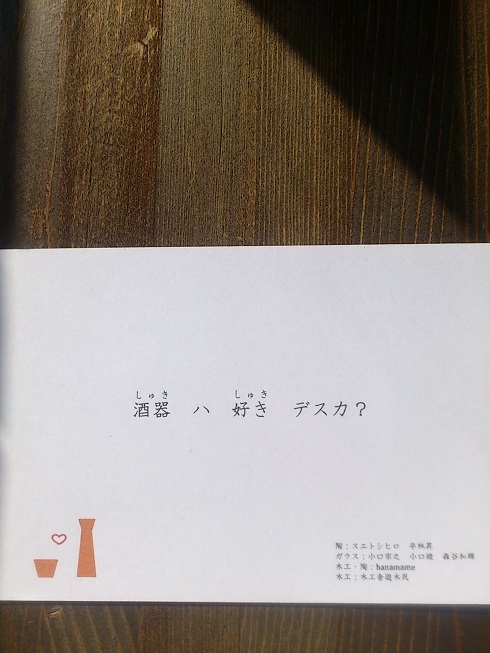 しゅき しゅき
酒器 ハ 好き デスカ？
陶：スエトシヒロ 平林昇
ガラス：小口宗之 小口綾 森谷和輝
木工・陶：hanamame
木工：木工舎遊木民